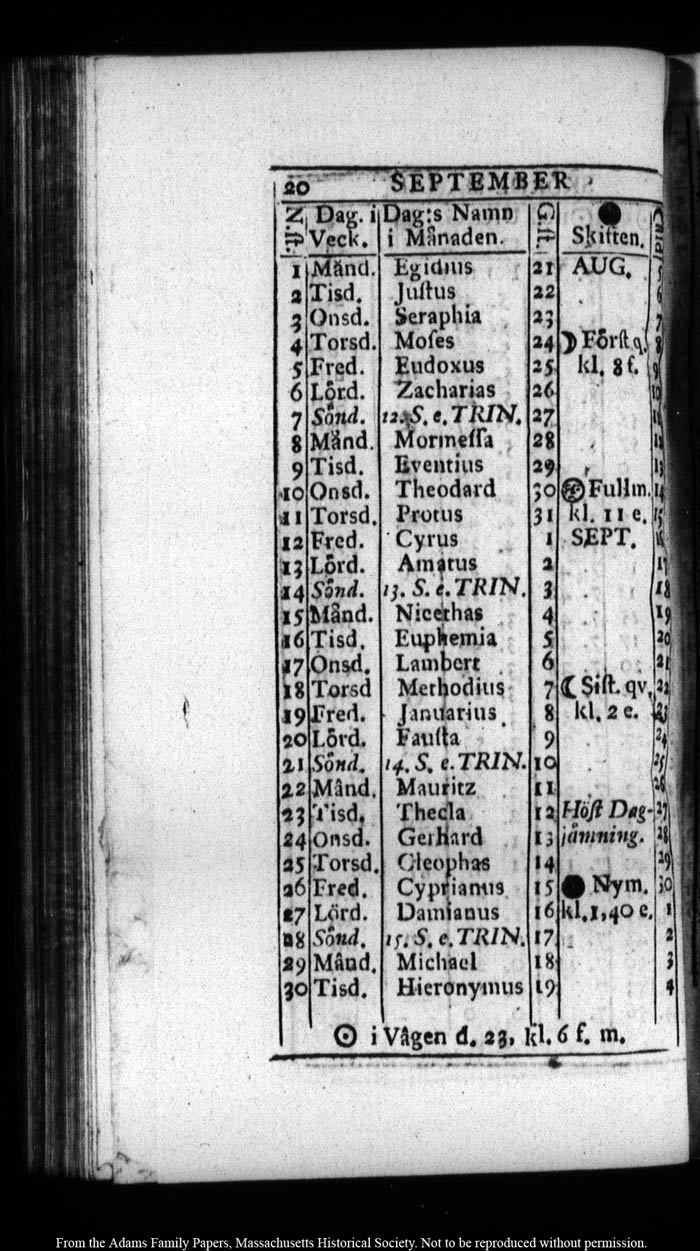 20 SEPTEMBER
N. ſt. Dag. i Veck. Dag:s Namn i Månaden. G. ſt. Skiften.
1 Månd. Egidius 21 AUG. 5
2 Tisd. Juſtus 22 6
3 Onsd. Seraphia 23 7
4 Torsd. Moſes 24 ☽ Förſt q. 8
5 Fred. Eudoxus 25 kl. 8 f. 9
6 Lörd. Zacharias 26 10
7 Sönd. 12. S. e. TRIN. 27 11
8 Månd. Mormeſſa 28 12
9 Tisd. Eventius 29 13
10 Onsd. Theodard 30 Fullm. 14
11 Torsd. Protus 31 kl. 11 e. 15
12 Fred. Cyrus 1 SEPT. 16
13 Lörd. Amatus 2 17
14 Sönd. 13. S. e. TRIN. 3 18
15 Månd. Nicethas 4 19
16 Tisd. Euphemia 5 20
17 Onsd. Lambert 6 21
18 Torsd Methodius 7 ☾ Siſt. qv. 22
19 Fred. Januarius 8 kl. 2 e. 23
20 Lörd. Fauſta 9 24
21 Sönd. 14. S. e. TRIN. 10 25
22 Månd. Mauritz 11 26
23 Tisd. Thecla 12 Höſt Dag- 27
24 Onsd. Gerhard 13 jämning. 28
25 Torsd. Cleophas 14 29
26 Fred. Cyprianus 15 ● Nym. 30
27 Lörd. Damianus 16 kl. 1,40 e. 1
28 Sönd. 15. S. e. TRIN. 17 2
29 Månd. Michael 18 3
30 Tisd. Hieronymus 19 4
☉ i Vågen d. 23, kl. 6 f. m.
From the Adams Family Papers, Massachusetts Historical Society. Not to be reproduced without permission.